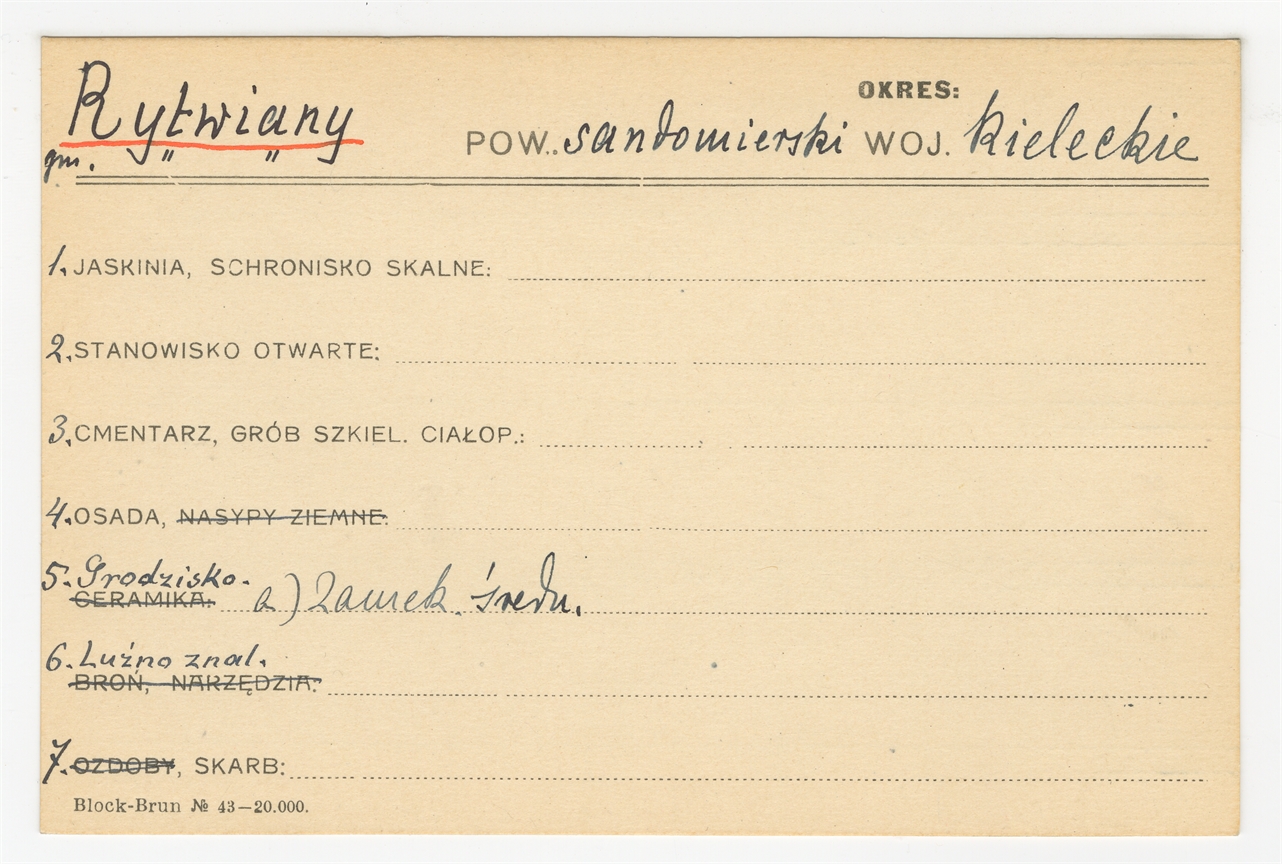 OKRES:
Rytwiany POW. sandomierski WOJ. kieleckie
gm. " "
1. JASKINIA, SCHRONISKO SKALNE:
2. STANOWISKO OTWARTE:
3. CMENTARZ, GRÓB SZKIEL. CIAŁOP.:
4. OSADA, NASYPY ZIEMNE:
5. Grodzisko.
CERAMIKA: a) Zamek. średn.
6. Luźno znal.
BROŃ, NARZĘDZIA:
7. OZDOBY, SKARB:
Block-Brun № 43—20.000.